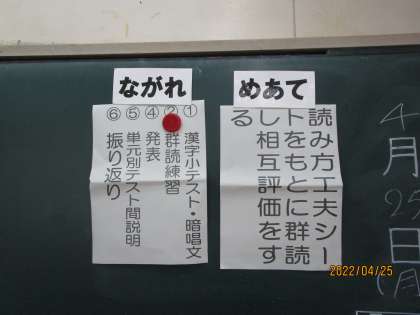 4月25日(月
めあて
読み方工夫シー
トをもとに群読
し相互評価をす
る
ながれ
①漢字小テスト・暗唱文
②群読練習
④発表
⑤単元別テスト間説明
⑥振り返り
2022/04/25